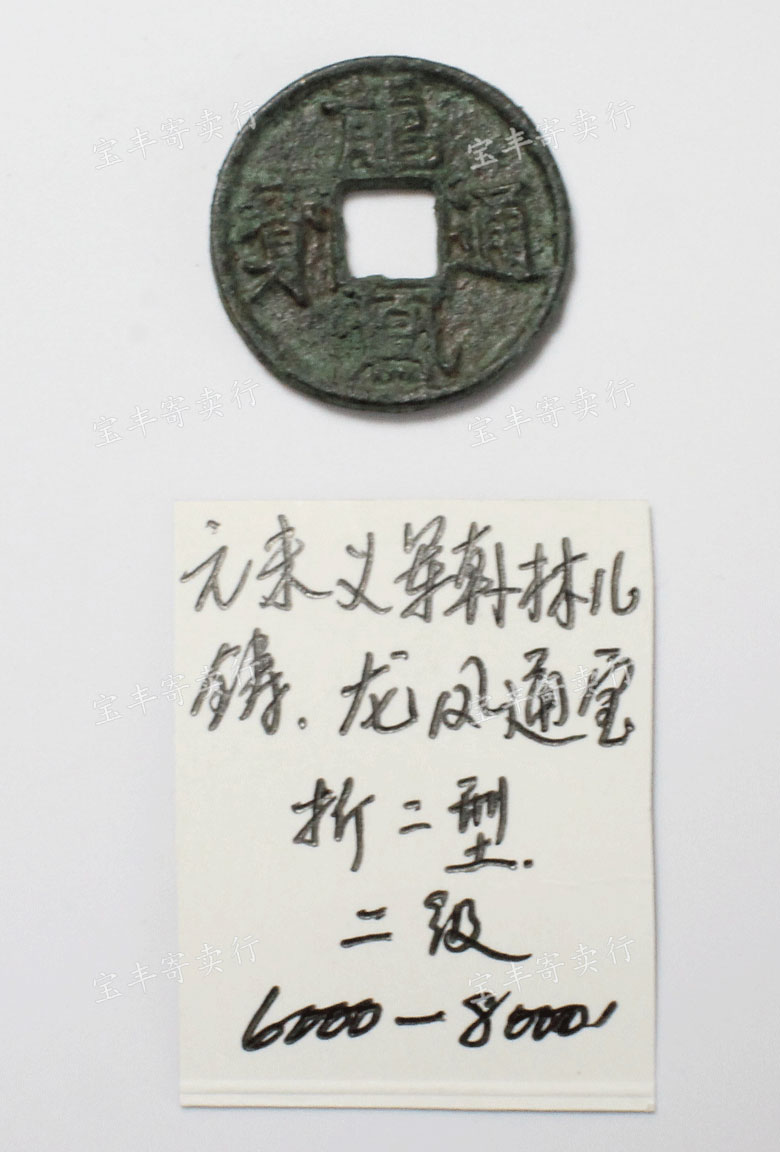 宝丰寄卖行 宝丰寄卖行
龍鳳通寶
宝丰寄卖行 宝丰寄卖行
元末义军韩林儿
铸.龙凤通宝
宝丰寄卖行 宝丰寄卖行
折二型.
二级
宝丰寄卖行 宝丰寄卖行
6000-8000